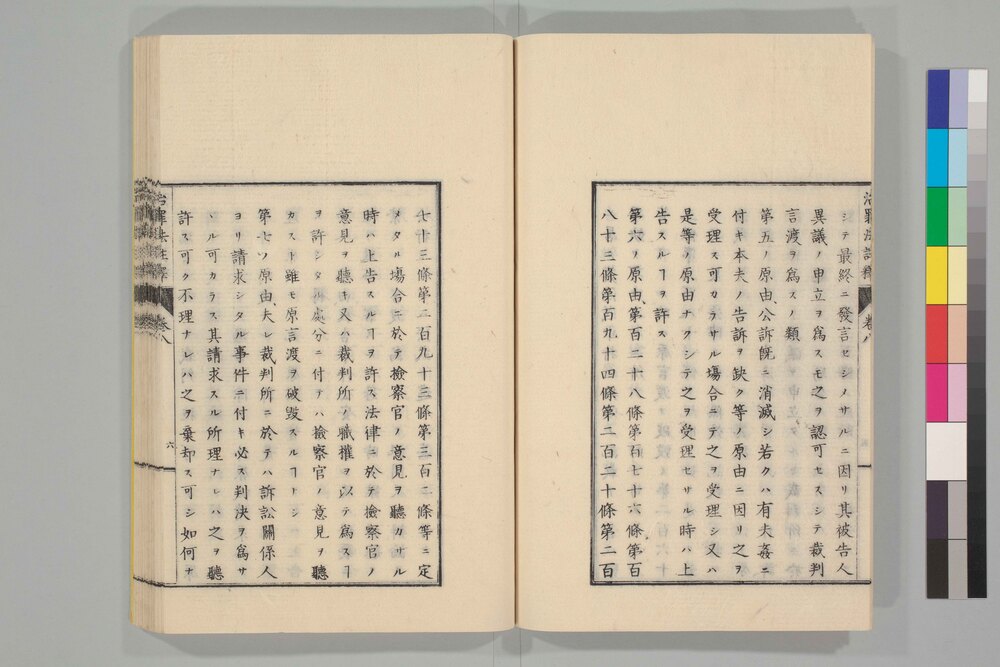 シテ最終ニ發言セシメサルニ因リ其被告人
異議ノ申立ヲ爲スモ之ヲ認可セスシテ裁判
言渡ヲ爲スノ類
第五ノ原由、公訴旣ニ消滅シ若クハ有夫姦ニ
付キ本夫ノ告訴ヲ缺ク等ノ原由ニ因リ之ヲ
受理ス可カラサル塲合ニテ之ヲ受理シ又ハ
是等ノ原由ナクシテ之ヲ受理セサル時ハ上
告スルヿヲ許ス
第六ノ原由、第百二十八條第百七十六條第百
八十三條第百九十四條第二百二十條第二百
七十三條第二百九十三條第三百二條等ニ定
メタル塲合ニ於テ檢察官ノ意見ヲ聽カサル
時ハ上告スルヿヲ許ス法律ニ於テ檢察官ノ
意見ヲ聽キ又ハ裁判所ノ職權ヲ以テ爲スヿ
ヲ許シタル處分ニ付テハ檢察官ノ意見ヲ聽
カスト雖モ原言渡ヲ破毀スルヿトシ
第七ノ原由、夫レ裁判所ニ於テハ訴訟關係人
ヨリ請求シタル事件ニ付キ必ス判決ヲ爲サ
ヽル可カラス其請求スル所理ナレハ之ヲ聽
許ス可ク不理ナレハ之ヲ棄却ス可シ如何ナ
治罪法註釋
卷八
六